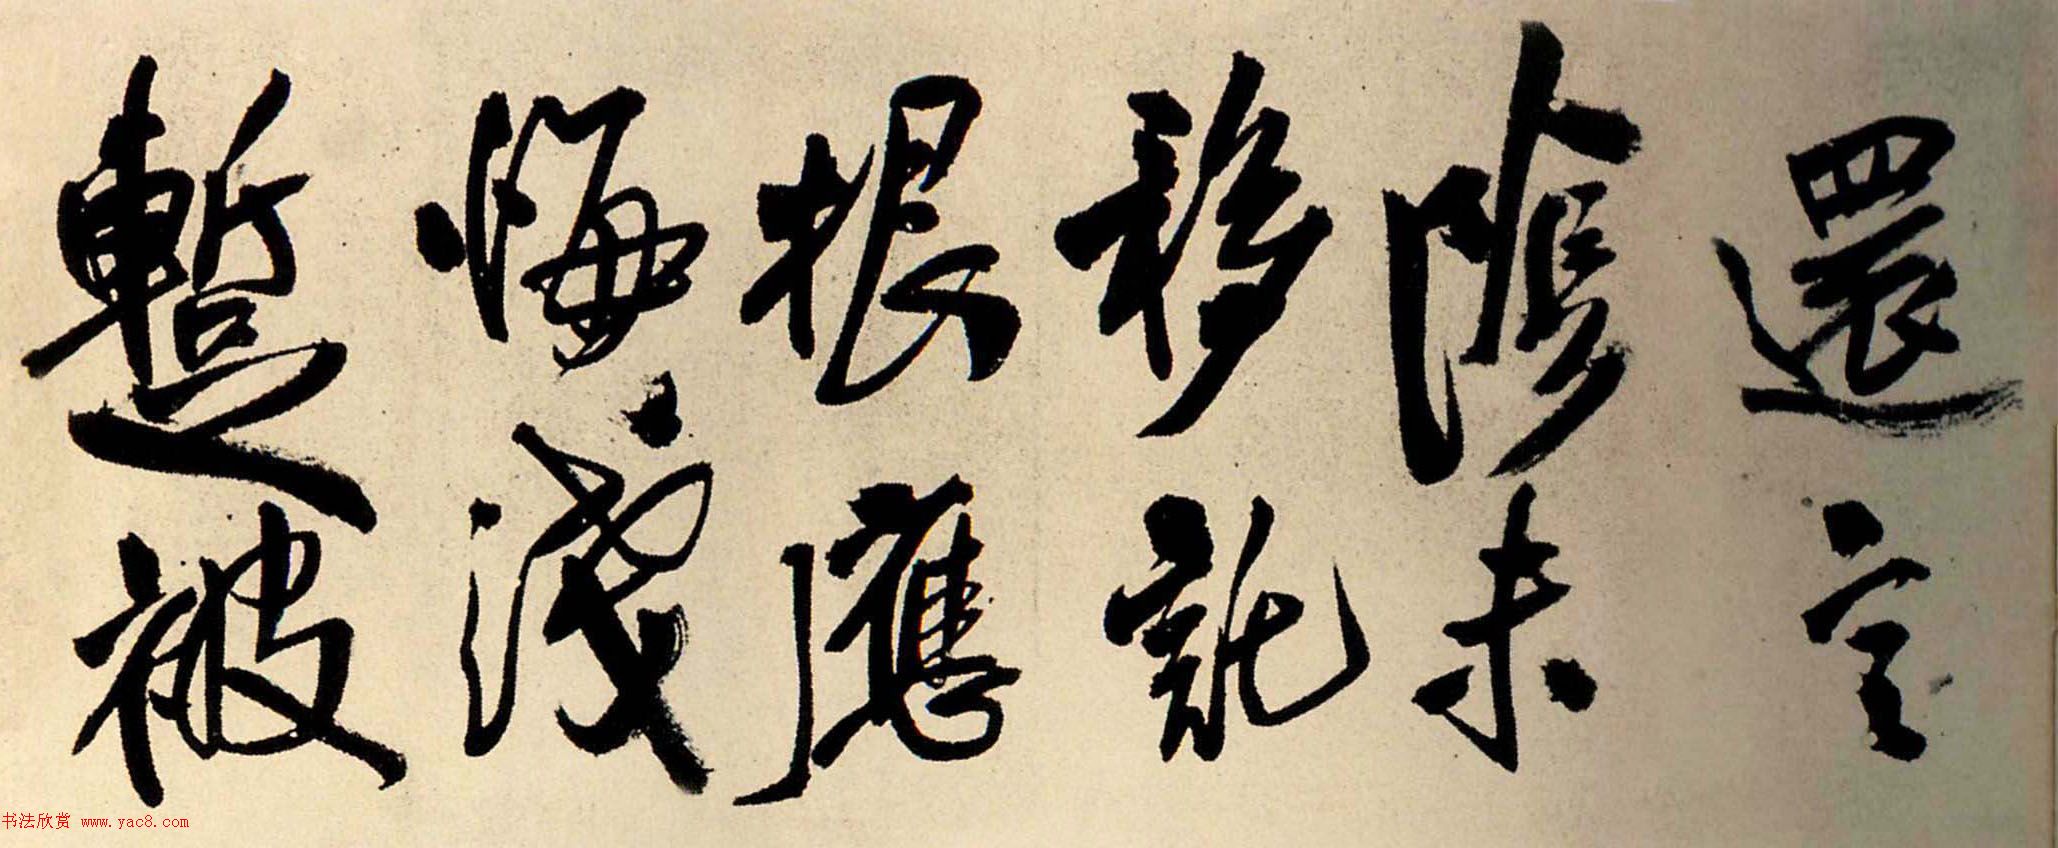 還
陰未
移託
根應
悔淺
蹔被
书法欣赏 www.yac8.com